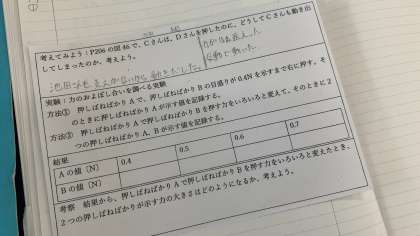 考えてみよう：P206の図46で、Cさんは、Dさんを押したのに、どうしてCさんも動き出
してしまったのか、考えよう。
実験：力のおよぼし合いを調べる実験
方法① 押しばねばかりAで、押しばねばかりBの目盛りが0.4Nを示すまで右に押す。そ
のときに押しばねばかりAが示す値を記録する。
方法② 押しばねばかりAで押しばねばかりBを押す力をいろいろと変えて、そのときに2
つの押しばねばかりA、Bが示す値を記録する。
結果
Aの値〔N〕 0.4 0.5 0.6 0.7
Bの値〔N〕
考察 結果から、押しばねばかりAで押しばねばかりBを押す力をいろいろと変えたとき、
2つの押しばねばかりが示す力の大きさはどのようになるか、考えよう。